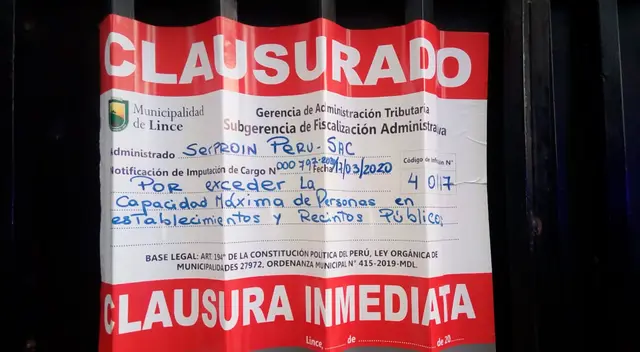 CLAUSURADO
Municipalidad de Lince
Gerencia de Administración Tributaria
Subgerencia de Fiscalización Administrativa
Administrado SERPROIN PERU-SAC
Notificación de Imputación de Cargo N° 000797 Fecha /03/2020
Código de Infracción N°
4.017
POR exceder La
Capacidad Máxima de Personas en
establecimientos y Recintos Públicos
BASE LEGAL: ART. 194° DE LA CONSTITUCIÓN POLÍTICA DEL PERÚ, LEY ORGÁNICA DE
MUNICIPALIDADES 27972. ORDENANZA MUNICIPAL N° 415-2019-MDL.
CLAUSURA INMEDIATA
Lince, ........ de ................ de 20.....